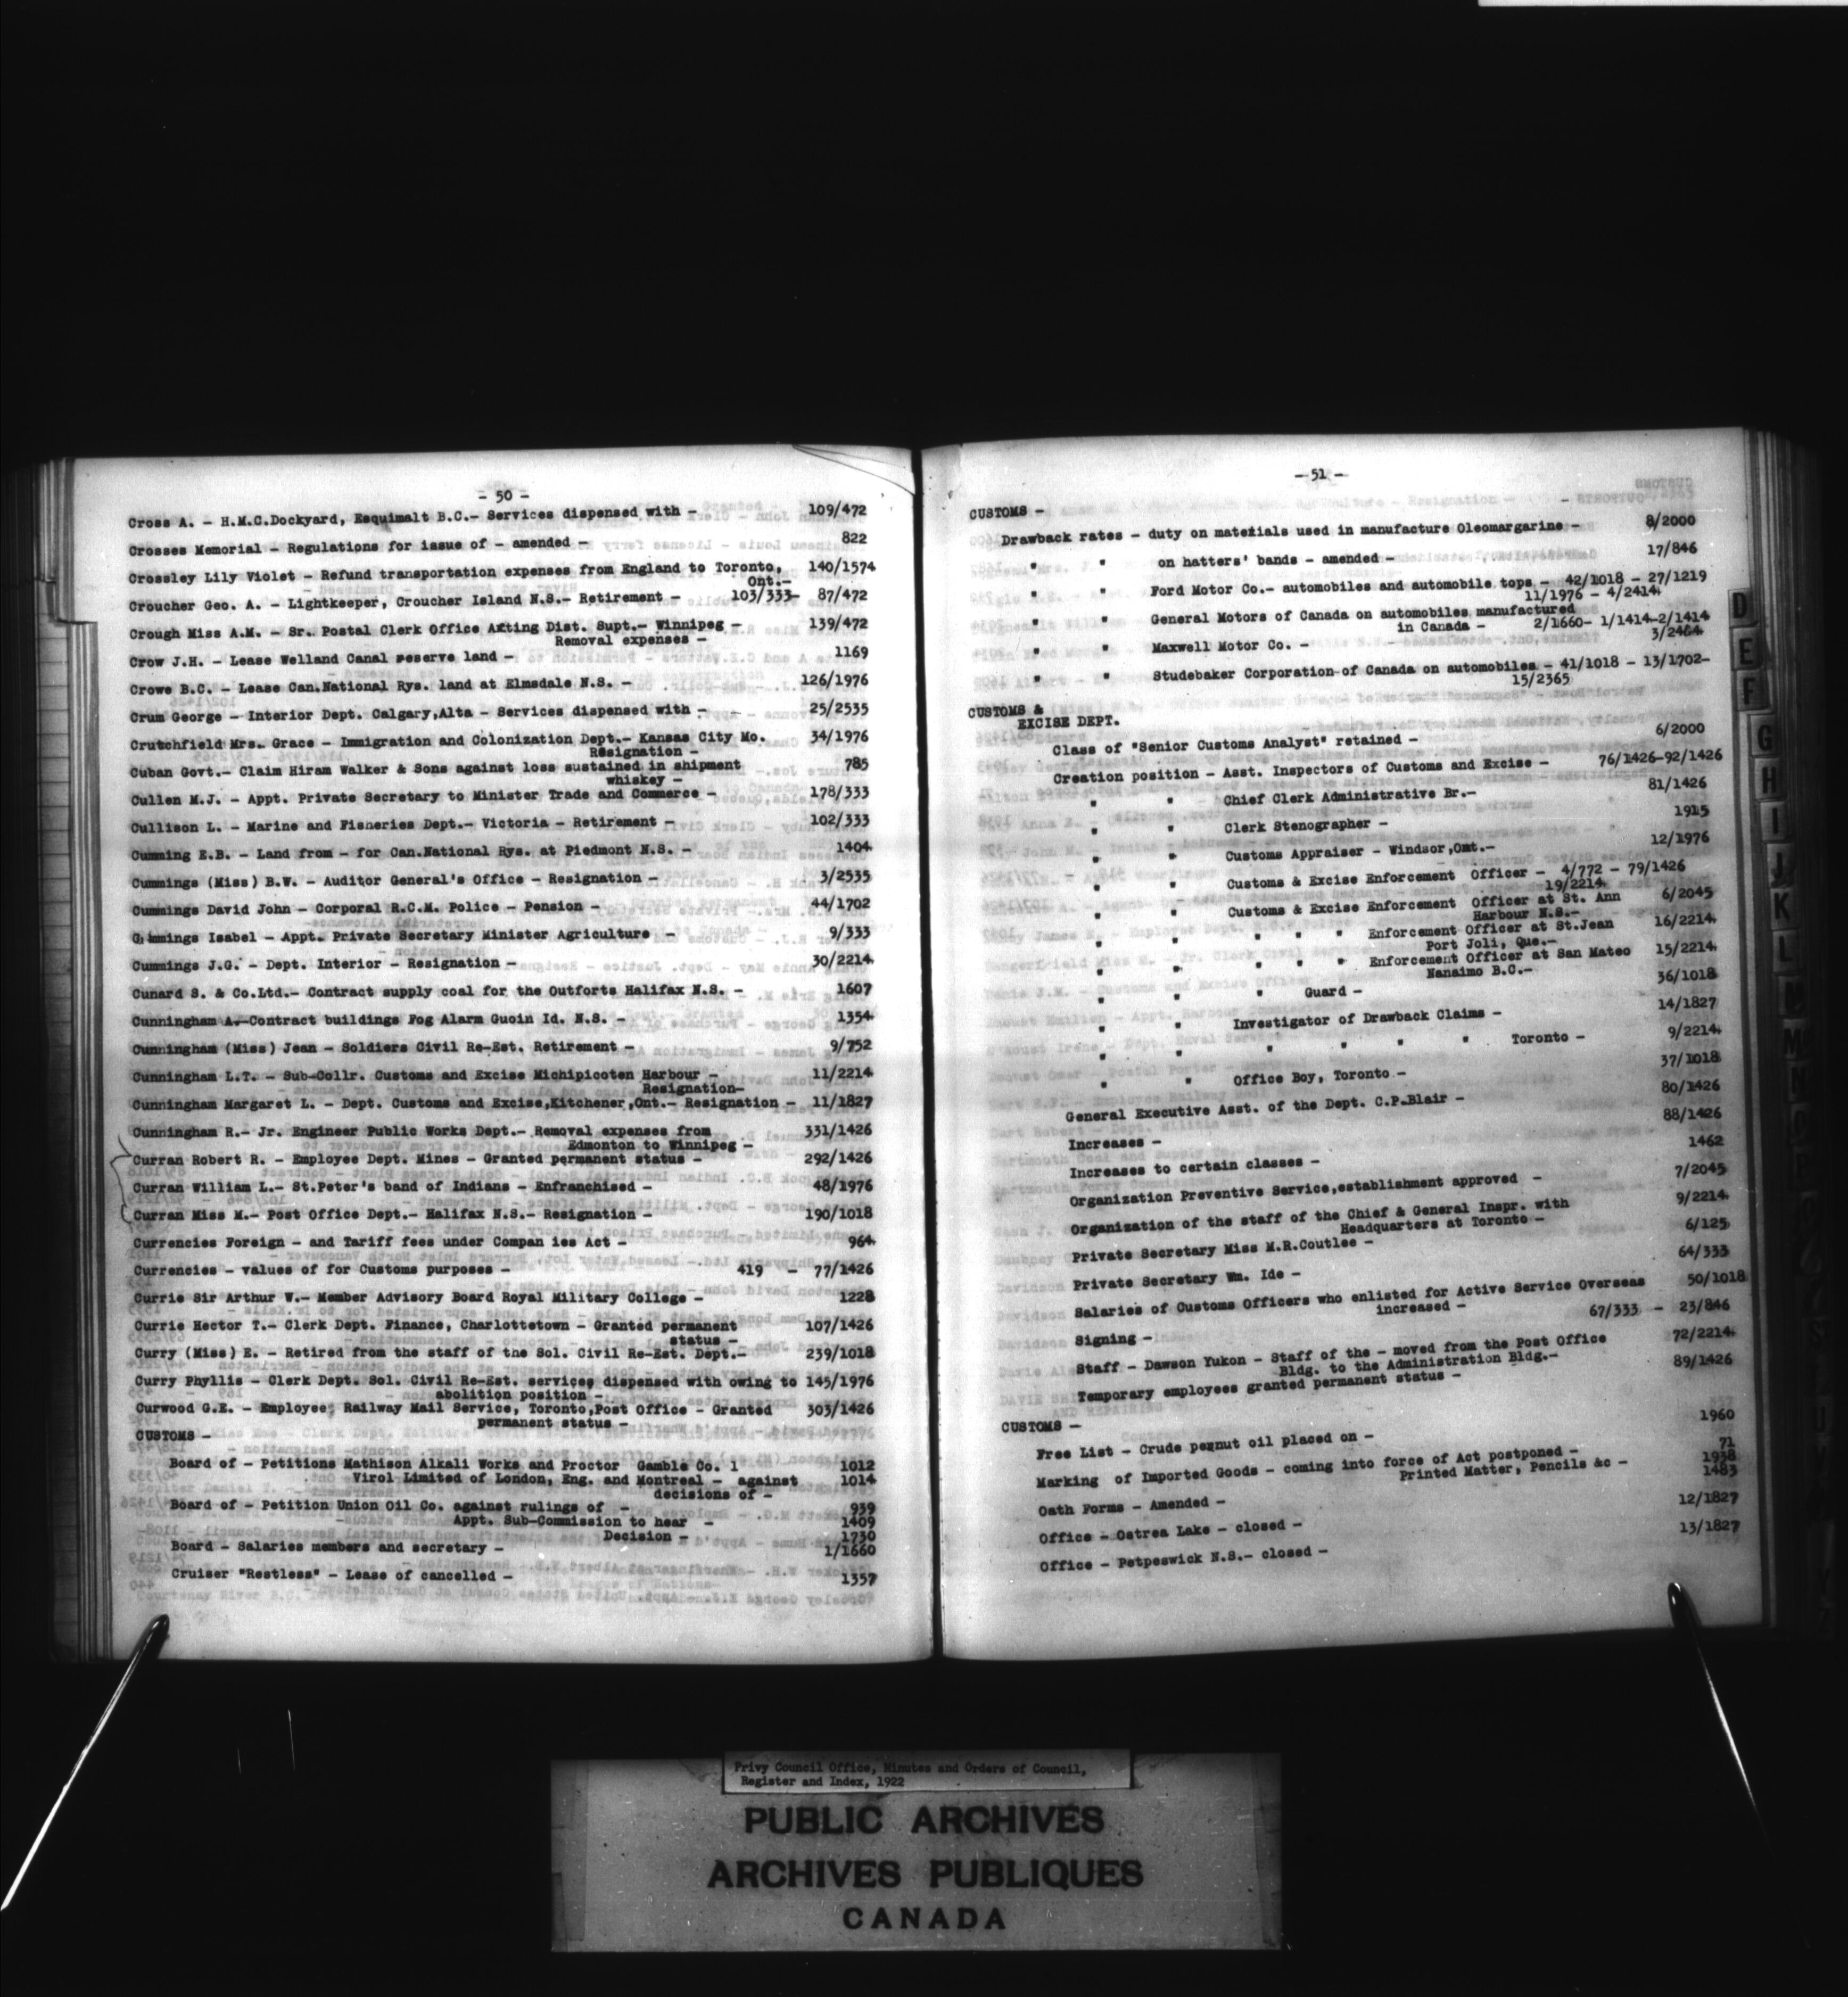 - 50 -
Cross A. - H.M.C.Dockyard, Esquimalt B.C.- Services dispensed with - 109/472
Crosses Memorial - Regulations for issue of - amended - 822
Crossley Lily Violet - Refund transportation expenses from England to Toronto, 140/1574
Ont.-
Croucher Geo. A. - Lightkeeper, Croucher Island N.S.- Retirement - 103/333- 87/472
Crough Miss A.M. - Sr. Postal Clerk Office Axting Dist. Supt.- Winnipeg - 139/472
Removal expenses -
Crow J.H. - Lease Welland Canal reserve land - 1169
Crowe B.C. - Lease Can.National Rys. land at Elmsdale N.S. - 126/1976
Crum George - Interior Dept. Calgary,Alta - Services dispensed with - 25/2535
Crutchfield Mrs. Grace - Immigration and Colonization Dept.- Kansas City Mo. 34/1976
Resignation -
Cuban Govt.- Claim Hiram Walker & Sons against loss sustained in shipment 785
whiskey -
Cullen M.J. - Appt. Private Secretary to Minister Trade and Commerce - 178/333
Cullison L. - Marine and Fisheries Dept.- Victoria - Retirement - 102/333
Cumming E.B. - Land from - for Can.National Rys. at Piedmont N.S. - 1404
Cummings (Miss) B.W. - Auditor General's Office - Resignation - 3/2535
Cummings David John - Corporal R.C.M. Police - Pension - 44/1702
Cummings Isabel - Appt. Private Secretary Minister Agriculture - 9/333
Cummings J.G. - Dept. Interior - Resignation - 30/2214
Cunard S. & Co.Ltd.- Contract supply coal for the Outforts Halifax N.S. - 1607
Cunningham A.-Contract buildings Fog Alarm Guoin Id. N.S. - 1354
Cunningham (Miss) Jean - Soldiers Civil Re-Est. Retirement - 9/752
Cunningham L.T. - Sub-Collr. Customs and Excise Michipicoten Harbour - 11/2214
Resignation-
Cunningham Margaret L. - Dept. Customs and Excise,Kitchener,Ont.- Resignation - 11/1827
Cunningham R.- Jr. Engineer Public Works Dept.- Removal expenses from 331/1426
Edmonton to Winnipeg -
Curran Robert R. - Employee Dept. Mines - Granted permanent status - 292/1426
Curran William L.- St.Peter's band of Indians - Enfranchised - 48/1976
Curran Miss M.- Post Office Dept.- Halifax N.S.- Resignation - 190/1018
Currencies Foreign - and Tariff fees under Compan ies Act - 964
Currencies - values of for Customs purposes - 419 - 77/1426
Currie Sir Arthur W.- Member Advisory Board Royal Military College - 1228
Currie Hector T.- Clerk Dept. Finance, Charlottetown - Granted permanent 107/1426
status -
Curry (Miss) E. - Retired from the staff of the Sol. Civil Re-Est. Dept.- 239/1018
Curry Phyllis - Clerk Dept. Sol. Civil Re-Est. services dispensed with owing to 145/1976
abolition position -
Curwood G.E. - Employee, Railway Mail Service, Toronto,Post Office - Granted 303/1426
permanent status -
CUSTOMS -
Board of - Petitions Mathison Alkali Works and Proctor Gamble Co. 1 1012
Virol Limited of London, Eng. and Montreal - against 1014
decisions of -
Board of - Petition Union Oil Co. against rulings of - 939
Appt. Sub-Commission to hear - 1409
Decision - 1730
Board - Salaries members and secretary - 1/1660
Cruiser "Restless" - Lease of cancelled - 1357
- 51 -
CUSTOMS -
Drawback rates - duty on materials used in manufacture Oleomargarine - 8/2000
" " on hatters' bands - amended - 17/846
" " Ford Motor Co.- automobiles and automobile tops - 42/1018 - 27/1219
11/1976 - 4/2414
" " General Motors of Canada on automobiles manufactured
in Canada - 2/1660- 1/1414-2/1414
" " Maxwell Motor Co. - 3/2464
" " Studebaker Corporation of Canada on automobiles - 41/1018 - 13/1702-
15/2365
CUSTOMS &
EXCISE DEPT.
Class of "Senior Customs Analyst" retained - 6/2000
Creation position - Asst. Inspectors of Customs and Excise - 76/1426-92/1426
" " Chief Clerk Administrative Br.- 81/1426
" " Clerk Stenographer - 1915
" " Customs Appraiser - Windsor,Ont.- 12/1976
" " Customs & Excise Enforcement Officer - 4/772 - 79/1426
19/2214
" " Customs & Excise Enforcement Officer at St. Ann 6/2045
Harbour N.S.-
" " " " " Enforcement Officer at St.Jean 16/2214
Port Joli, Que.-
" " " " " Enforcement Officer at San Mateo 15/2214
Nanaimo B.C.-
" " " Guard - 36/1018
" " Investigator of Drawback Claims - 14/1827
" " " " " " Toronto - 9/2214
" " Office Boy, Toronto - 37/1018
General Executive Asst. of the Dept. C.P.Blair - 80/1426
Increases - 88/1426
Increases to certain classes - 1462
Organization Preventive Service,establishment approved - 7/2045
Organization of the staff of the Chief & General Inspr. with 9/2214
Headquarters at Toronto -
Private Secretary Miss M.R.Coutlee - 6/125
Private Secretary Wm. Ide - 64/333
Salaries of Customs Officers who enlisted for Active Service Overseas 50/1018
increased -
Signing - 67/333 - 23/846
Staff - Dawson Yukon - Staff of the - moved from the Post Office 72/2214
Bldg. to the Administration Bldg.-
Temporary employees granted permanent status - 89/1426
CUSTOMS -
Free List - Crude peanut oil placed on - 1960
Marking of Imported Goods - coming into force of Act postponed - 71
1938
Printed Matter, Pencils &c - 1483
Oath Forms - Amended -
Office - Ostrea Lake - closed - 12/1827
Office - Petpeswick N.S.- closed - 13/1827
D
E
F
G
H
I
J
K
L
M
Privy Council Office, Minutes and Orders of Council,
Register and Index, 1922
PUBLIC ARCHIVES
ARCHIVES PUBLIQUES
CANADA